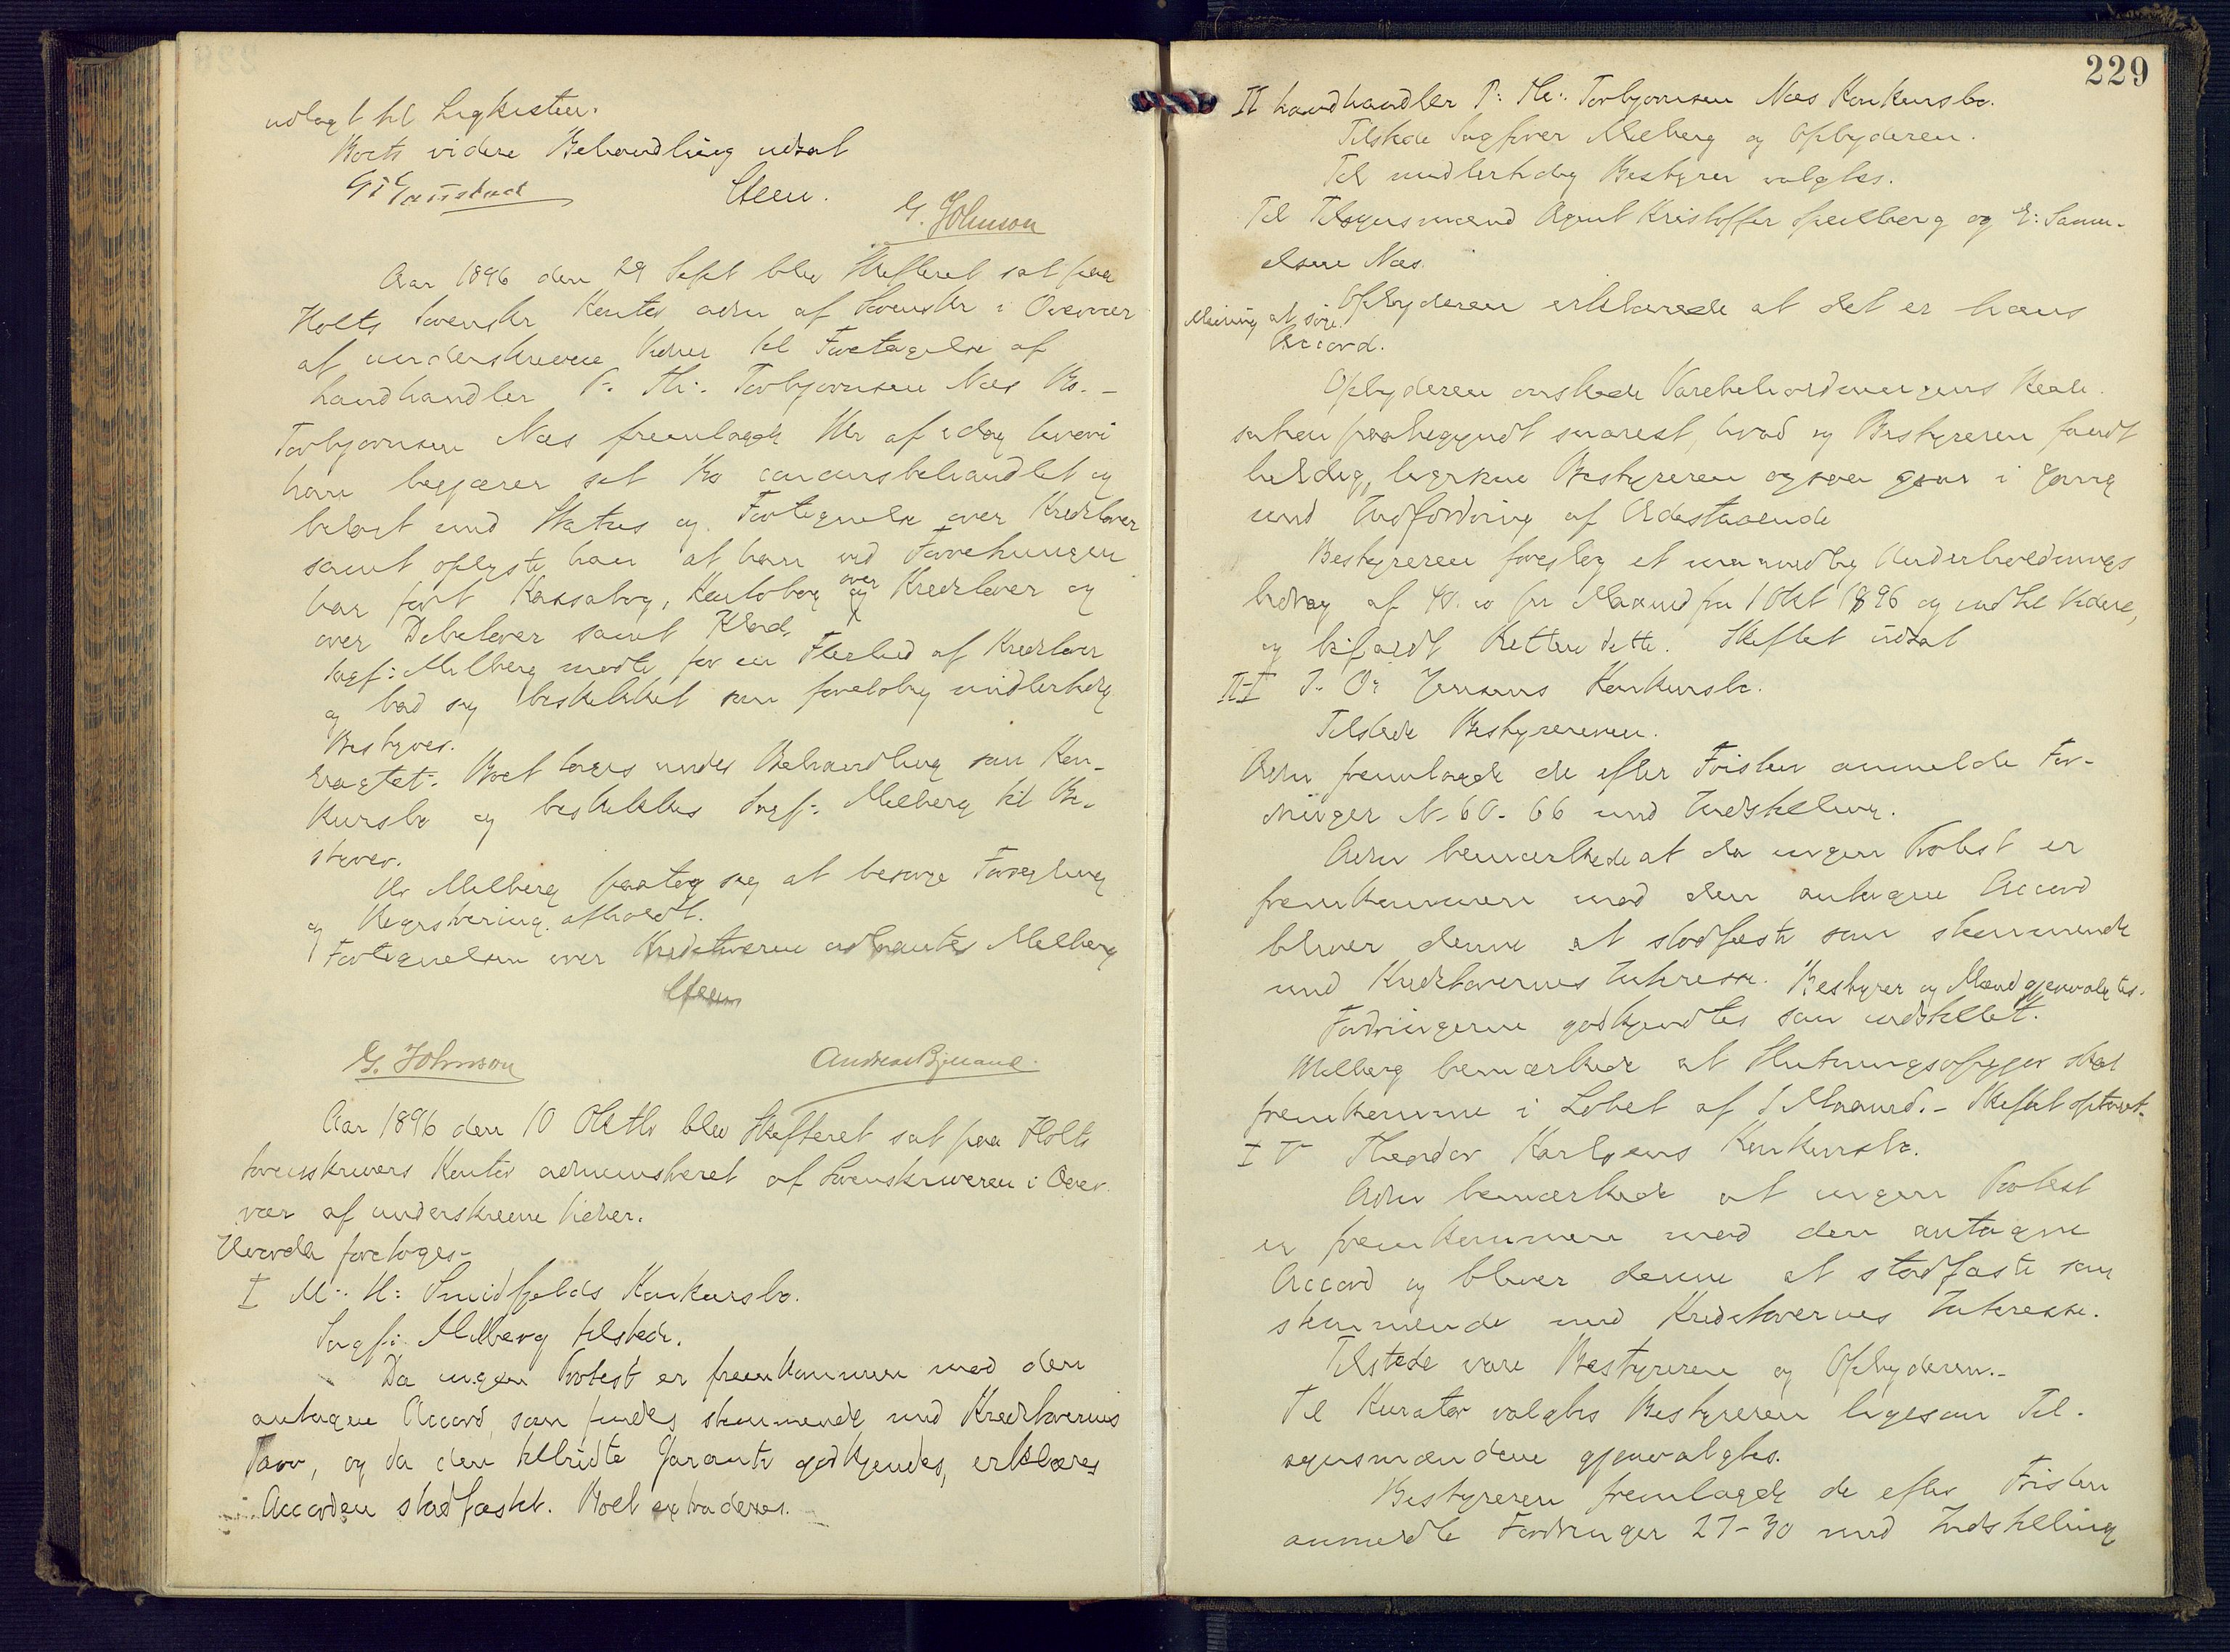 udlagt til Ligkisten.
Boets videre Behandling udsat
Steen.
G. Johnson
Aar 1896 den 29 Sept blev Skifteret sat paa
Holts Sorenskr Kontor adm af Sorenskr i Overvær
af underskrevne Vidner til Foretagelse af
Landhandler P. Th: Torbjørnsen Næs Bo.-
Torbjørnsen Næs fremlagde Skr af idag hvori
han begjærer sit Bo concursbehandlet og
bilagt med Status og Fortegnelse over Kreditorer
samt oplyste han at han ved Forretningen
har ført Kassabog, Kontobog over Kreditorer og
over Debitorer samt Klad.
Sagf: Melberg mødte for en Flerhed af Kreditorer
og bad sig beskikket som foreløbig midlertidig
Bestyrer.
Eragtet: Boet tages under Behandling som Kon-
kursbo og beskikkes Sagf: Melberg til Be-
styrer.
Hr Melberg paatog sig at besørge Forsegling
og Registrering afholdt.
Fortegnelsen over Kreditorerne Melberg
Steen
G. Johnson
Aar 1896 den 10 Oktbr blev Skifteret sat paa Holts
Sorenskrivers Kontor administreret af Sorenskriveren i Over-
vær af underskrevne Vidner.
Hvorda foretoges-
I M: H: Smidfjelds Konkursbo.
Sagf: Melberg tilstede.
Da ingen Protest er fremkommen mod den
antagne Accord, som findes stemmende med Kreditorernes
Tarv, og da den tilbudte Garanti godkjendes, erklæres
Accorden stadfæstet. Boet extraderes.
229
II Landhandler P: Th: Torbjørnsen Næs Konkursbo.
Tilstede Sagfører Melberg og Opbyderen.
Til midlertidig Bestyrer valgtes.
Til Tilsynsmænd Agent Kristoffer og E: Samu-
elsen Næs.
Opbyderen erklærede at det er hans
Mening at søge
Accord.
Opbyderen ønskede Varebeholdningens Reali-
sation paabegyndt snarest, hvad og Bestyreren fandt
heldig, Bestyreren ogsaa i Gang
med Indfordring af Udestaaende
Bestyreren foreslog et maanedlig Underholdnings
bidrag af 40.00 pr Maaned fra 1 Okt 1896 og indtil Videre,
og bifaldt Retten dette. Skiftet udsat
III J. O: Jensens Konkursbo.
Tilstede Bestyreren.
Adm fremlagde de efter Fristen anmeldte For-
dringer N- 60- 66 med Indstilling.
Adm bemærkede at da ingen Protest er
fremkommen mod den antagne Accord
bliver denne at stadfæste som stemmende
med Kreditorernes Interesse. Bestyrer og Mænd gjenvalgtes.
Fordringerne godkjendtes som indstillet.
Melberg bemærkede at Slutningsopgjør skal
fremkomme i Løbet af 1 Maaned.- Skiftet
IV Theodor Karlsens Konkursbo.
Adm bemærkede at ingen Protest
er fremkommen mod den antagne
Accord og bliver denne at stadfæste som
stemmende med Kreditorernes Interesse.
Tilstede vare Bestyreren og Opbyderen.-
Til Kurator valgtes Bestyreren ligesom Til-
synsmændene gjenvalgtes.
Bestyreren fremlagde de efter Fristen
anmeldte Fordringer 27-30 med Indstilling